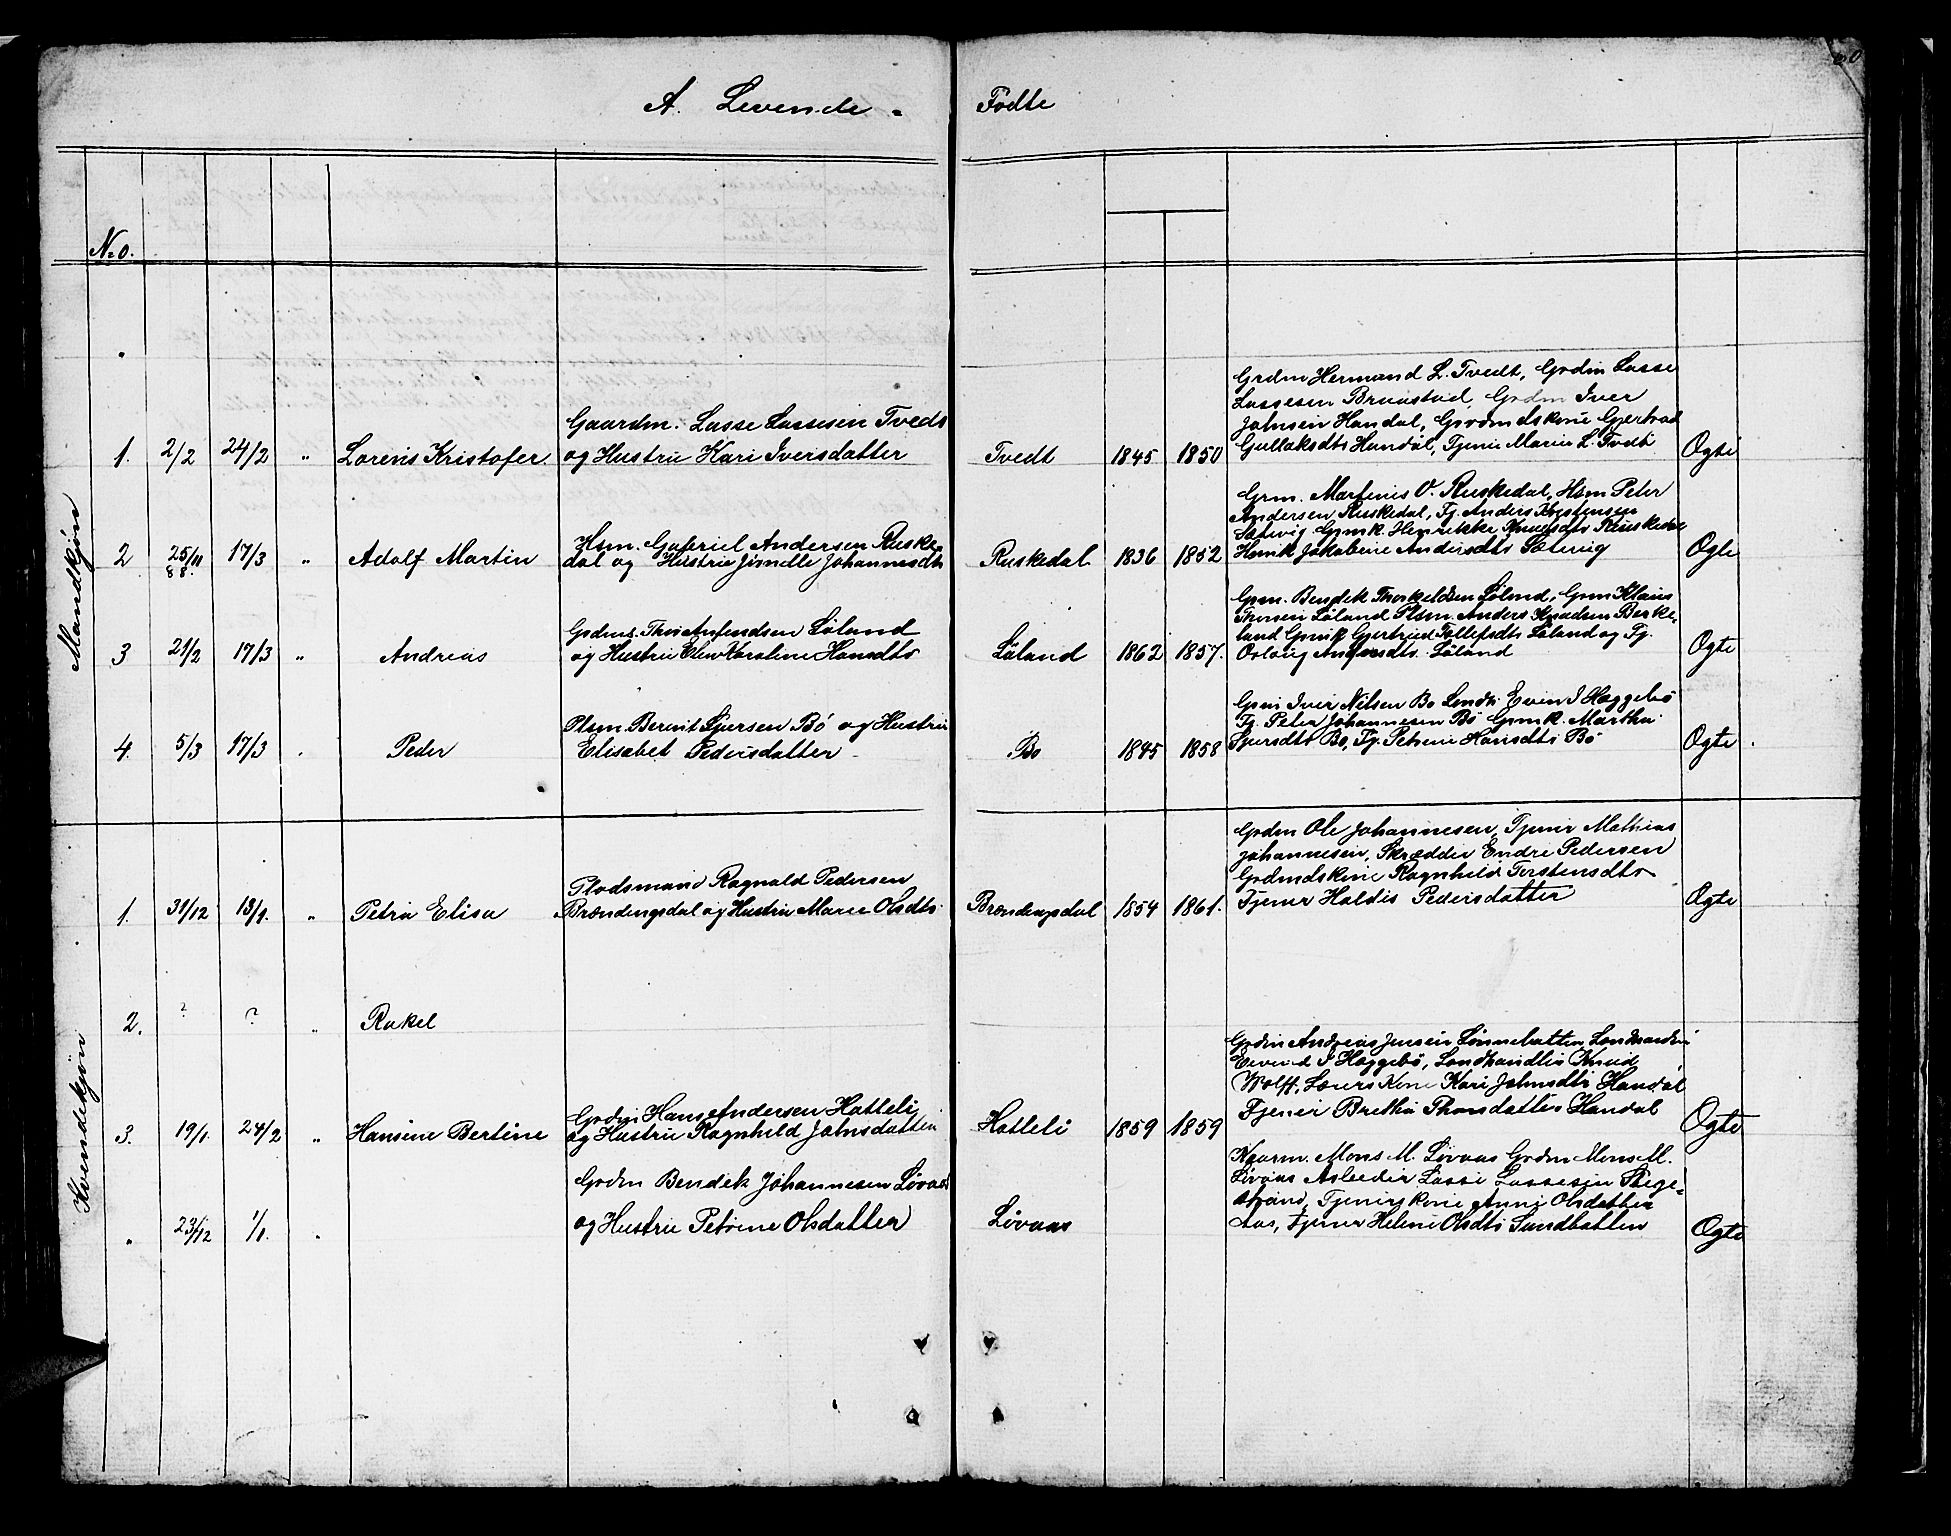 A. Levende - Födte
No.
Mandkjøn
Gaardm. Lasse Lassesen Tvedt
1. 2/2 24/2 " Lorens Kristofer og Hustru Kari Iversdatter
Tvedt 1845 1850
Grdm Hermand L. Tvedt, Grdm Lasse
Lassesen Bruastad, Grdm Iver
Johnsen Handal, Grdmdskone Gjertrud
Gullaksdtr Handal, Tjener Marie L. Tvedt
Ægte
2 25/11 88. 17/3 " Adolf Martin
Hsm. Gabriel Andersen Ruske-
dal og Hustru Johannesdtr
Ruskedal 1836 1852
Grm. Martinus O. Ruskedal, Hsm Peter
Andersen Ruskedal, Tj. Anders Kristensen
Sætevig Grmk. Henrikke Knudsdtr Ruskedal
Jakobine Andersdtr Sætevig
Ægte
3 21/2 17/3 " Andreas
Thor Anfindsen Løland
og Hustru Karoline Hansdtr
Løland 1862 1857.
Grm. Bendik Thorkeldsen Løland, Grm Klaus
Thorsen Løland Plsm. Anders Knudsen Berke-
land Grmk Gjertrud Tollefsdtr Løland og Tj.
Løland
Ægte
4. 5/3 17/3 . Peder
Plsm. Berent Sjursen Bö og Hustru
Elisabet Pedersdatter -
Bo 1845 1858
Grm Iver Nilsen Bo Even I Hoggebö
Tj. Peter Johannesen Bö Grmk. Martha
Sjursdtr Bo, Tj. Petrine Hansdtr Bö
Ægte
Kvindekjøn
1. 31/12 13/1. " Petra Elisa
Pladsmand Ragnald Pedersen
Brændingsdal og Hustru Marie Olsdtr
Brændingsdal 1854 1861.
Grdm Ole Johannesen, Tjener Mathias
Johannesen, Skrædder Endre Pedersen
Grdmdskone Ragnhild Torstensdtr
Tjener Haldis Pedersdatter
Ægte
2. ? ? " Rakel
3. 19/1. 24/2 " Hansine Bertine
Grdm Hans Andersen Hatleli
og Hustru Ragnhild Johnsdatter
Hatleli 1859 1859
Grdm Andreas Jensen Landhandler
I Hoggebö, Landhandler Knud
Wolff, Lærers Kone Kari Johnsdtr Handal
Tjener Bretha Thomsdatter Handal
Ægte
" 23/12 1/1. "
Grdm Bendik Johannesen Løvaas
og Hustru Petrine Olsdatter
Løvaas
Kaarm. Mons M. Løvaas Grdm Mons M.
Løvaas Arbeider Lasse Lassesen Stege-
strand, Tjenerskone Anne Olsdatter
Aas, Tjener Helene Olsdtr Sandbatten
Ægte